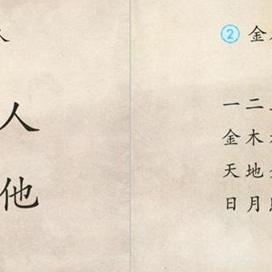 人
人
他
② 金
一二
金木
天地
日月